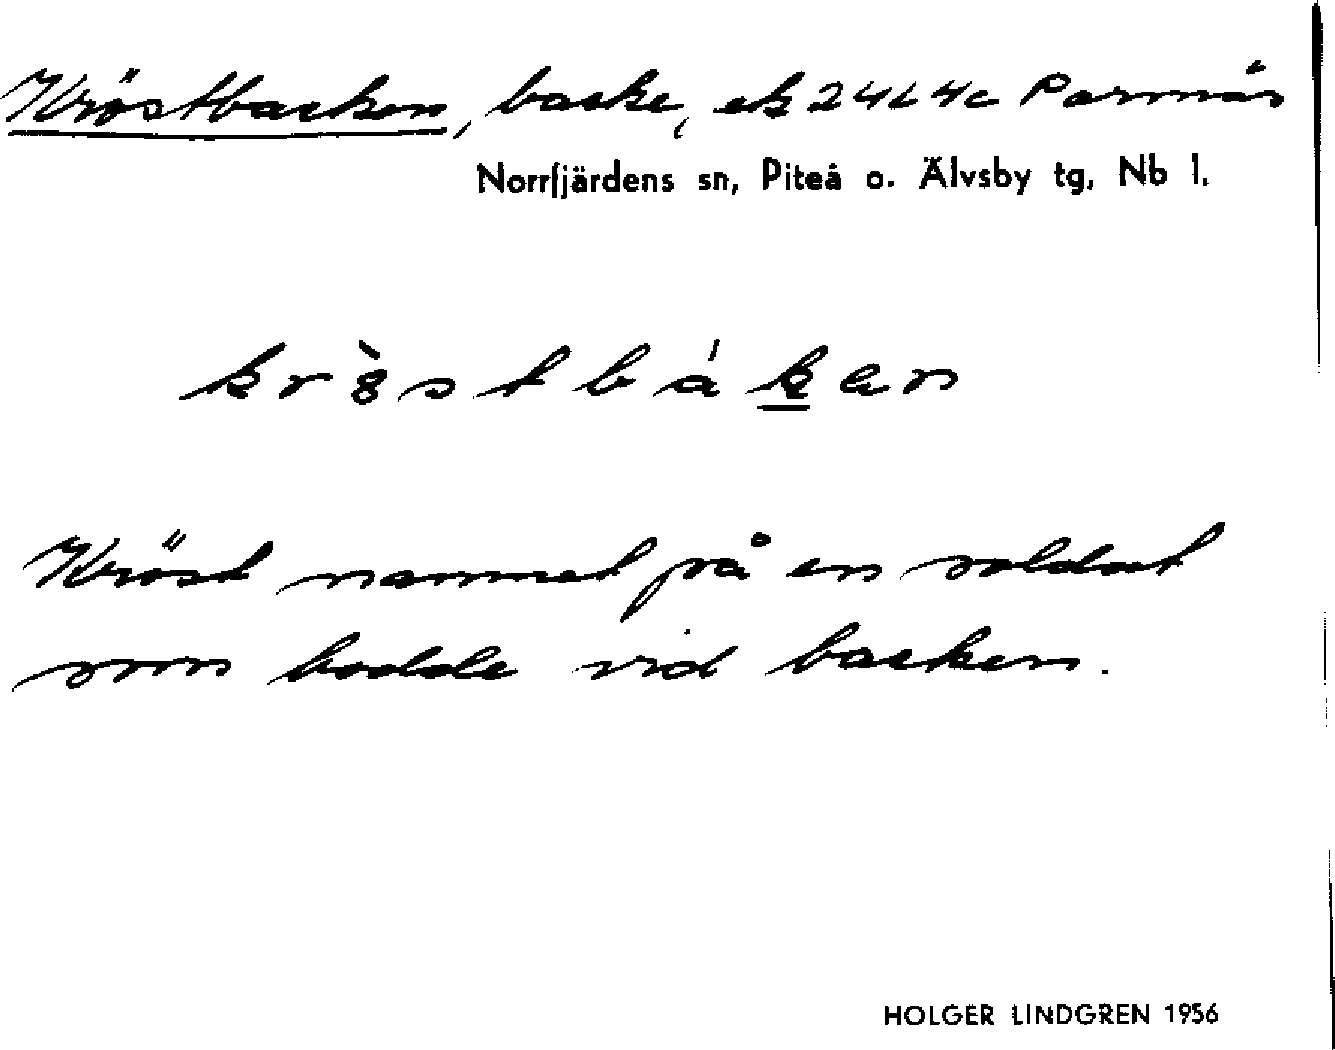 Kröstbacken, backe, ek 24L4c Parmnäs
Norrfjärdens sn, Piteå o. Älvsby tg, Nb l.
kròstbákan
Kröst namnet på en soldat
som bodde vid backen.
HOLGER LINDGREN 1956